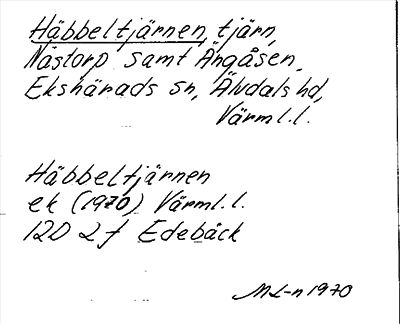 Häbbeltjärnen, tjärn,
Nästorp samt Ängåsen,
Ekshärads sn, Älvdals hd,
Värml.l.
Häbbeltjärnen
ek (1970) Värml.l.
12D 2f Edebäck
ML-n 1970